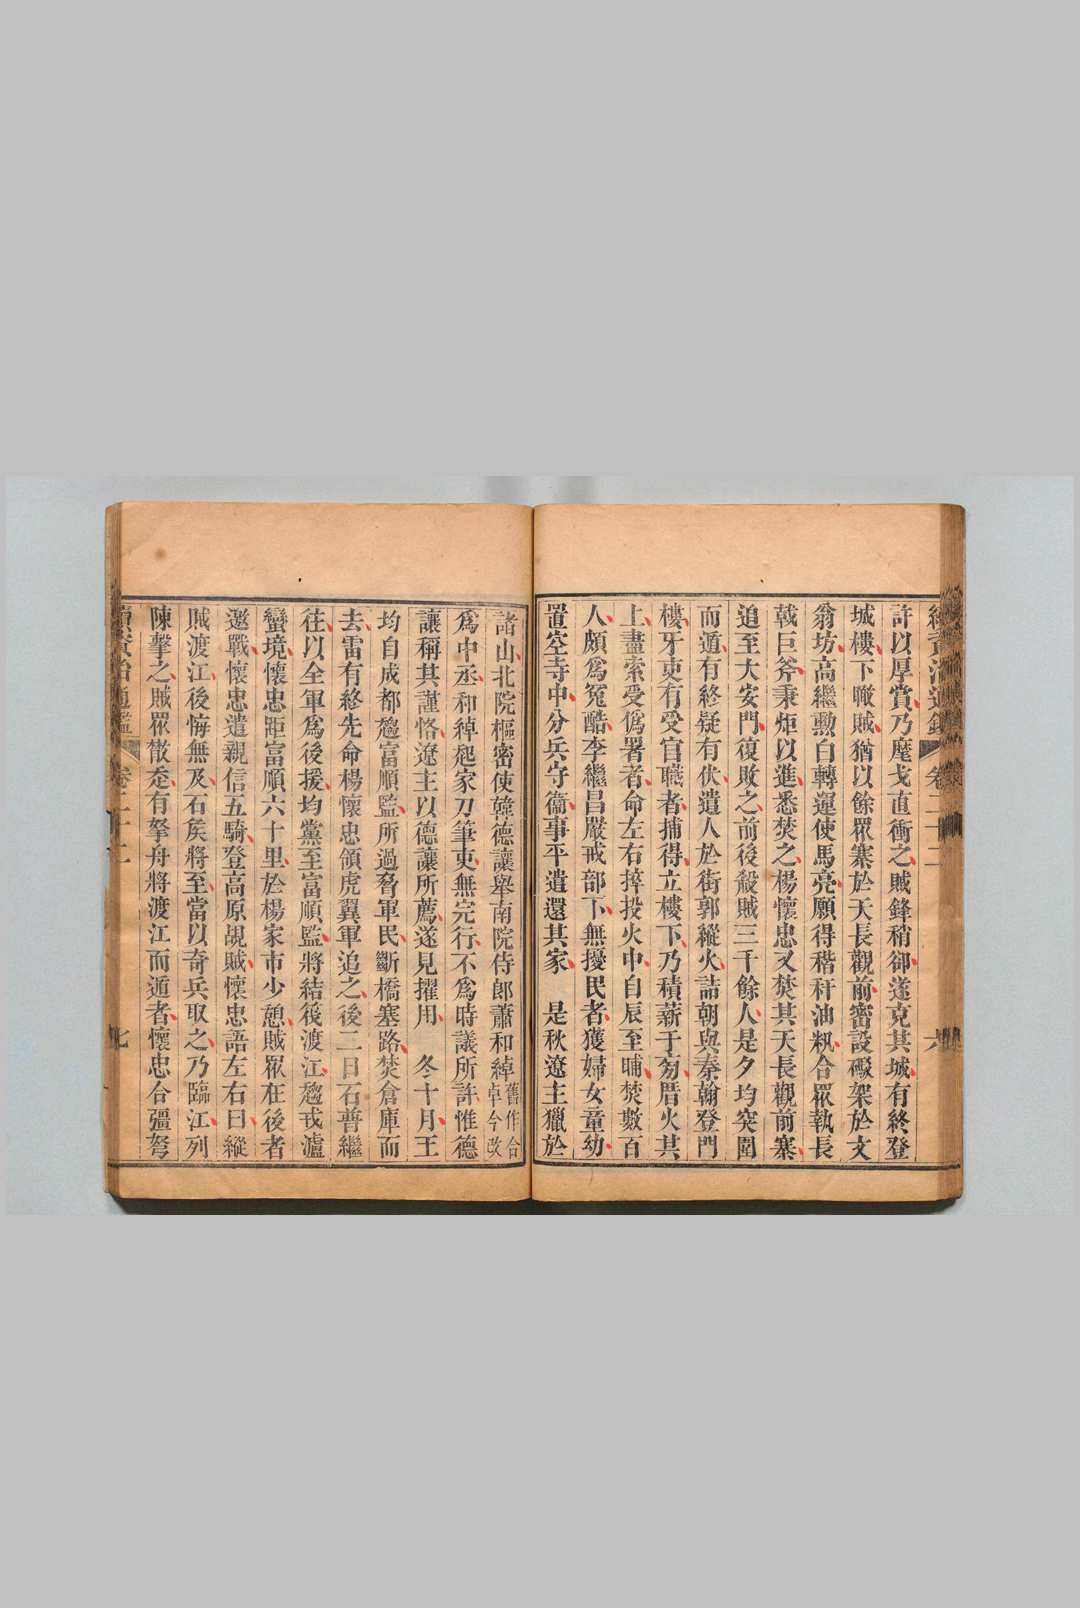 許以厚賞乃麾戈直衝之賊鋒稍卻遂克其城有終登
城樓下瞰賊猶以餘眾寨於天長觀前密設礮架於文
翁坊高繼勲白轉運使馬亮願得稭秆油籸合眾執長
戟巨斧秉炬以進悉焚之楊懷忠又焚其天長觀前寨
追至大安門復敗之前後殺賊三千餘人是夕均突圍
而遁有終疑有伏遣人於街郭縱火詰朝與秦翰登門
樓牙吏有受官職者捕得立樓下乃積薪于旁厝火其
上盡索受僞署者命左右捽投火中自辰至晡焚數百
人頗爲冤酷李繼昌嚴戒部下無擾民者獲婦女童幼
置空寺中分兵守衞事平遣還其家　是秋遼主獵於
續資治通鑑　卷二十二　六
諸山北院樞密使韓德讓舉南院侍郎蕭和綽舊作合卓今改
爲中丞和綽起家刀筆吏無完行不爲時議所許惟德
讓稱其謹恪遼主以德讓所薦遂見擢用　冬十月王
均自成都趨富順監所過脅軍民斷橋塞路焚倉庫而
去雷有終先命楊懷忠領虎翼軍追之後二日石普繼
往以全軍爲後援均黨至富順監將結筏渡江趨戎瀘
蠻境懷忠距富順六十里於楊家市少憩賊眾在後者
邀戰懷忠遣親信五騎登高原覘賊懷忠語左右曰縱
賊渡江後悔無及石矦將至當以奇兵取之乃臨江列
陳擊之賊眾散走有拏舟將渡江而遁者懷忠合彊弩
續資治通鑑　卷二十二　七